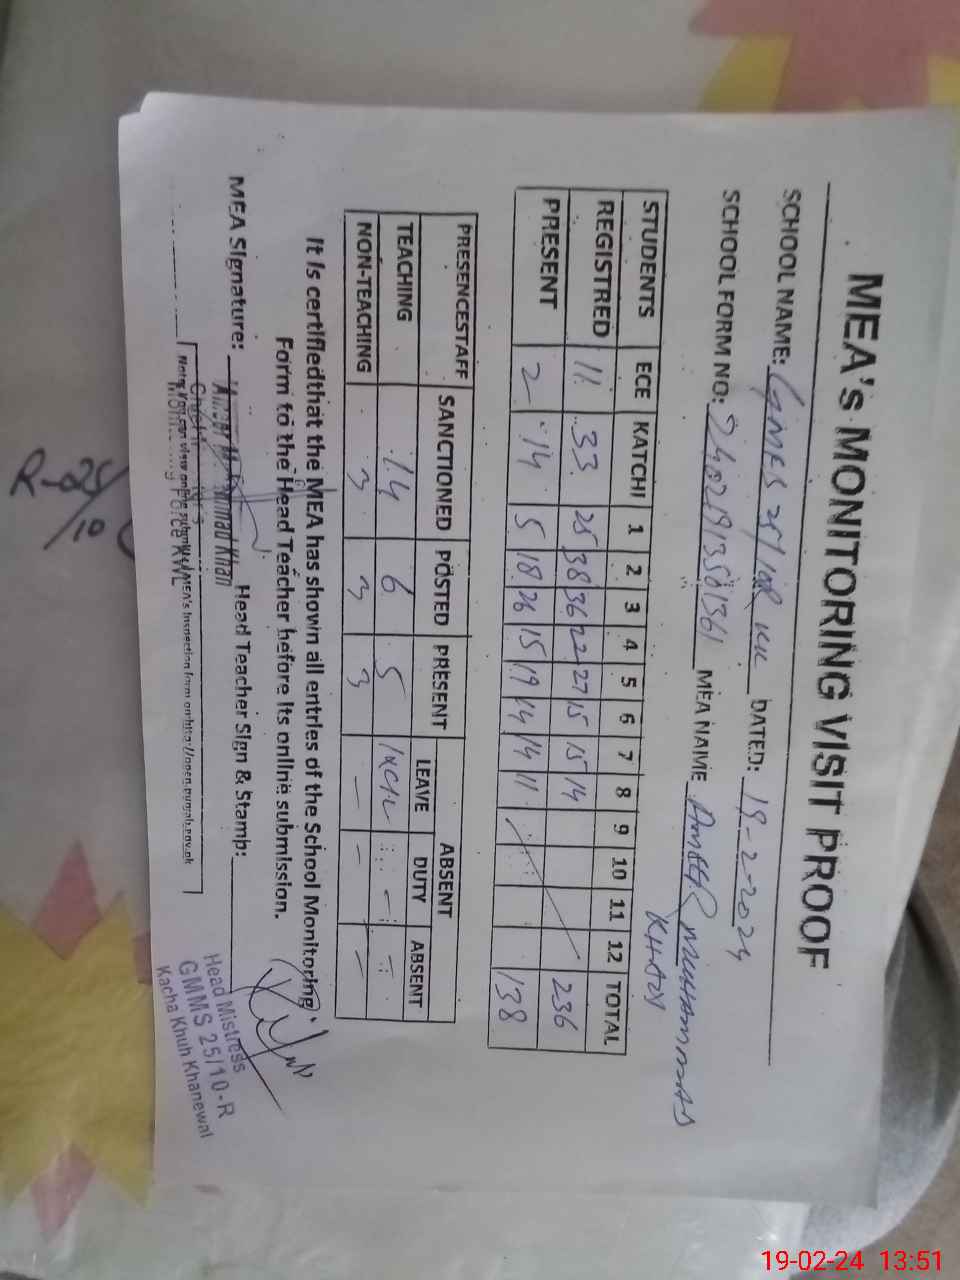 MEA'S MONITORING VISIT PROOF
SCHOOL NAME: GMES 25/10R KK DATED: 19-2-2024
SCHOOL FORM NO: MEA NAME Ameer MUHAMMAD
KHAN
STUDENTS ECE KATCHI 1 2 3 4 5 6 7 8 9 10 11 12 TOTAL
REGISTRED 11 33 25 38 36 22 27 15 15 14 236
PRESENT 2 14 5 18 26 15 19 14 14 11 138
PRESENCESTAFF SANCTIONED POSTED PRESENT ABSENT
LEAVE DUTY ABSENT
TEACHING 14 6 5 - -
NON-TEACHING 3 3 3 - - -
It is certifiedthat the MEA has shown all entries of the School Monitoring
Form to the Head Teacher before its online submission.
MEA Signature: Head Teacher Sign & Stamp:
Khan
Note: You can view online submitted MEA's Inspection form on http://open.punjab.gov.pk
Monitoring Force KWL
Head Mistress
GMMS 25/10-R
Kacha Khuh Khanewal
R-25/10
19-02-24 13:51